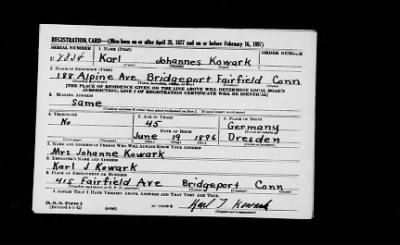 REGISTRATION CARD—(Men born on or after April 28, 1877 and on or before February 16, 1897)
SERIAL NUMBER 1. NAME (Print) ORDER NUMBER
U 2824 Karl Johannes Kowark
(First) (Middle) (Last)
2. PLACE OF RESIDENCE (Print)
188 Alpine Ave Bridgeport Fairfield Conn
(Number and street) (Town, township, village, or city) (County) (State)
[THE PLACE OF RESIDENCE GIVEN ON THE LINE ABOVE WILL DETERMINE LOCAL BOARD
JURISDICTION; LINE 2 OF REGISTRATION CERTIFICATE WILL BE IDENTICAL]
3. MAILING ADDRESS
Same
4. TELEPHONE 5. AGE IN YEARS 6. PLACE OF BIRTH
No 45 Germany
DATE OF BIRTH
June 19 1896 Dresden
7. NAME AND ADDRESS OF PERSON WHO WILL ALWAYS KNOW YOUR ADDRESS
Mrs Johanne Kowark
8. EMPLOYER'S NAME AND ADDRESS
Karl J Kowark
9. PLACE OF EMPLOYMENT OR BUSINESS
415 Fairfield Ave Bridgeport Conn
I AFFIRM THAT I HAVE VERIFIED ABOVE ANSWERS AND THAT THEY ARE TRUE.
D. S. S. Form 1
(Revised 4-1-42) Karl J Kowark